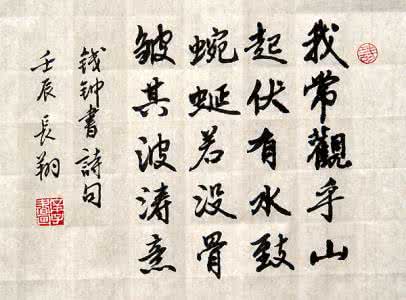 我常觀乎山
起伏有水致
蜿蜒若没骨
皱其波涛意
钱钟書詩句
壬辰 長翔